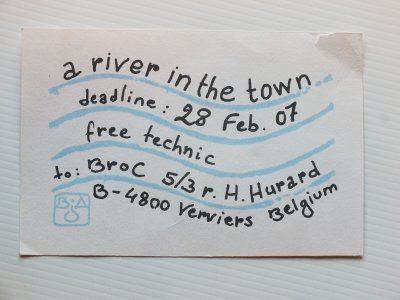 a river in the town
deadline: 28 Feb. 07
free technic
to: BroC 5/3 r. H. Hurard
B-4800 Verviers Belgium